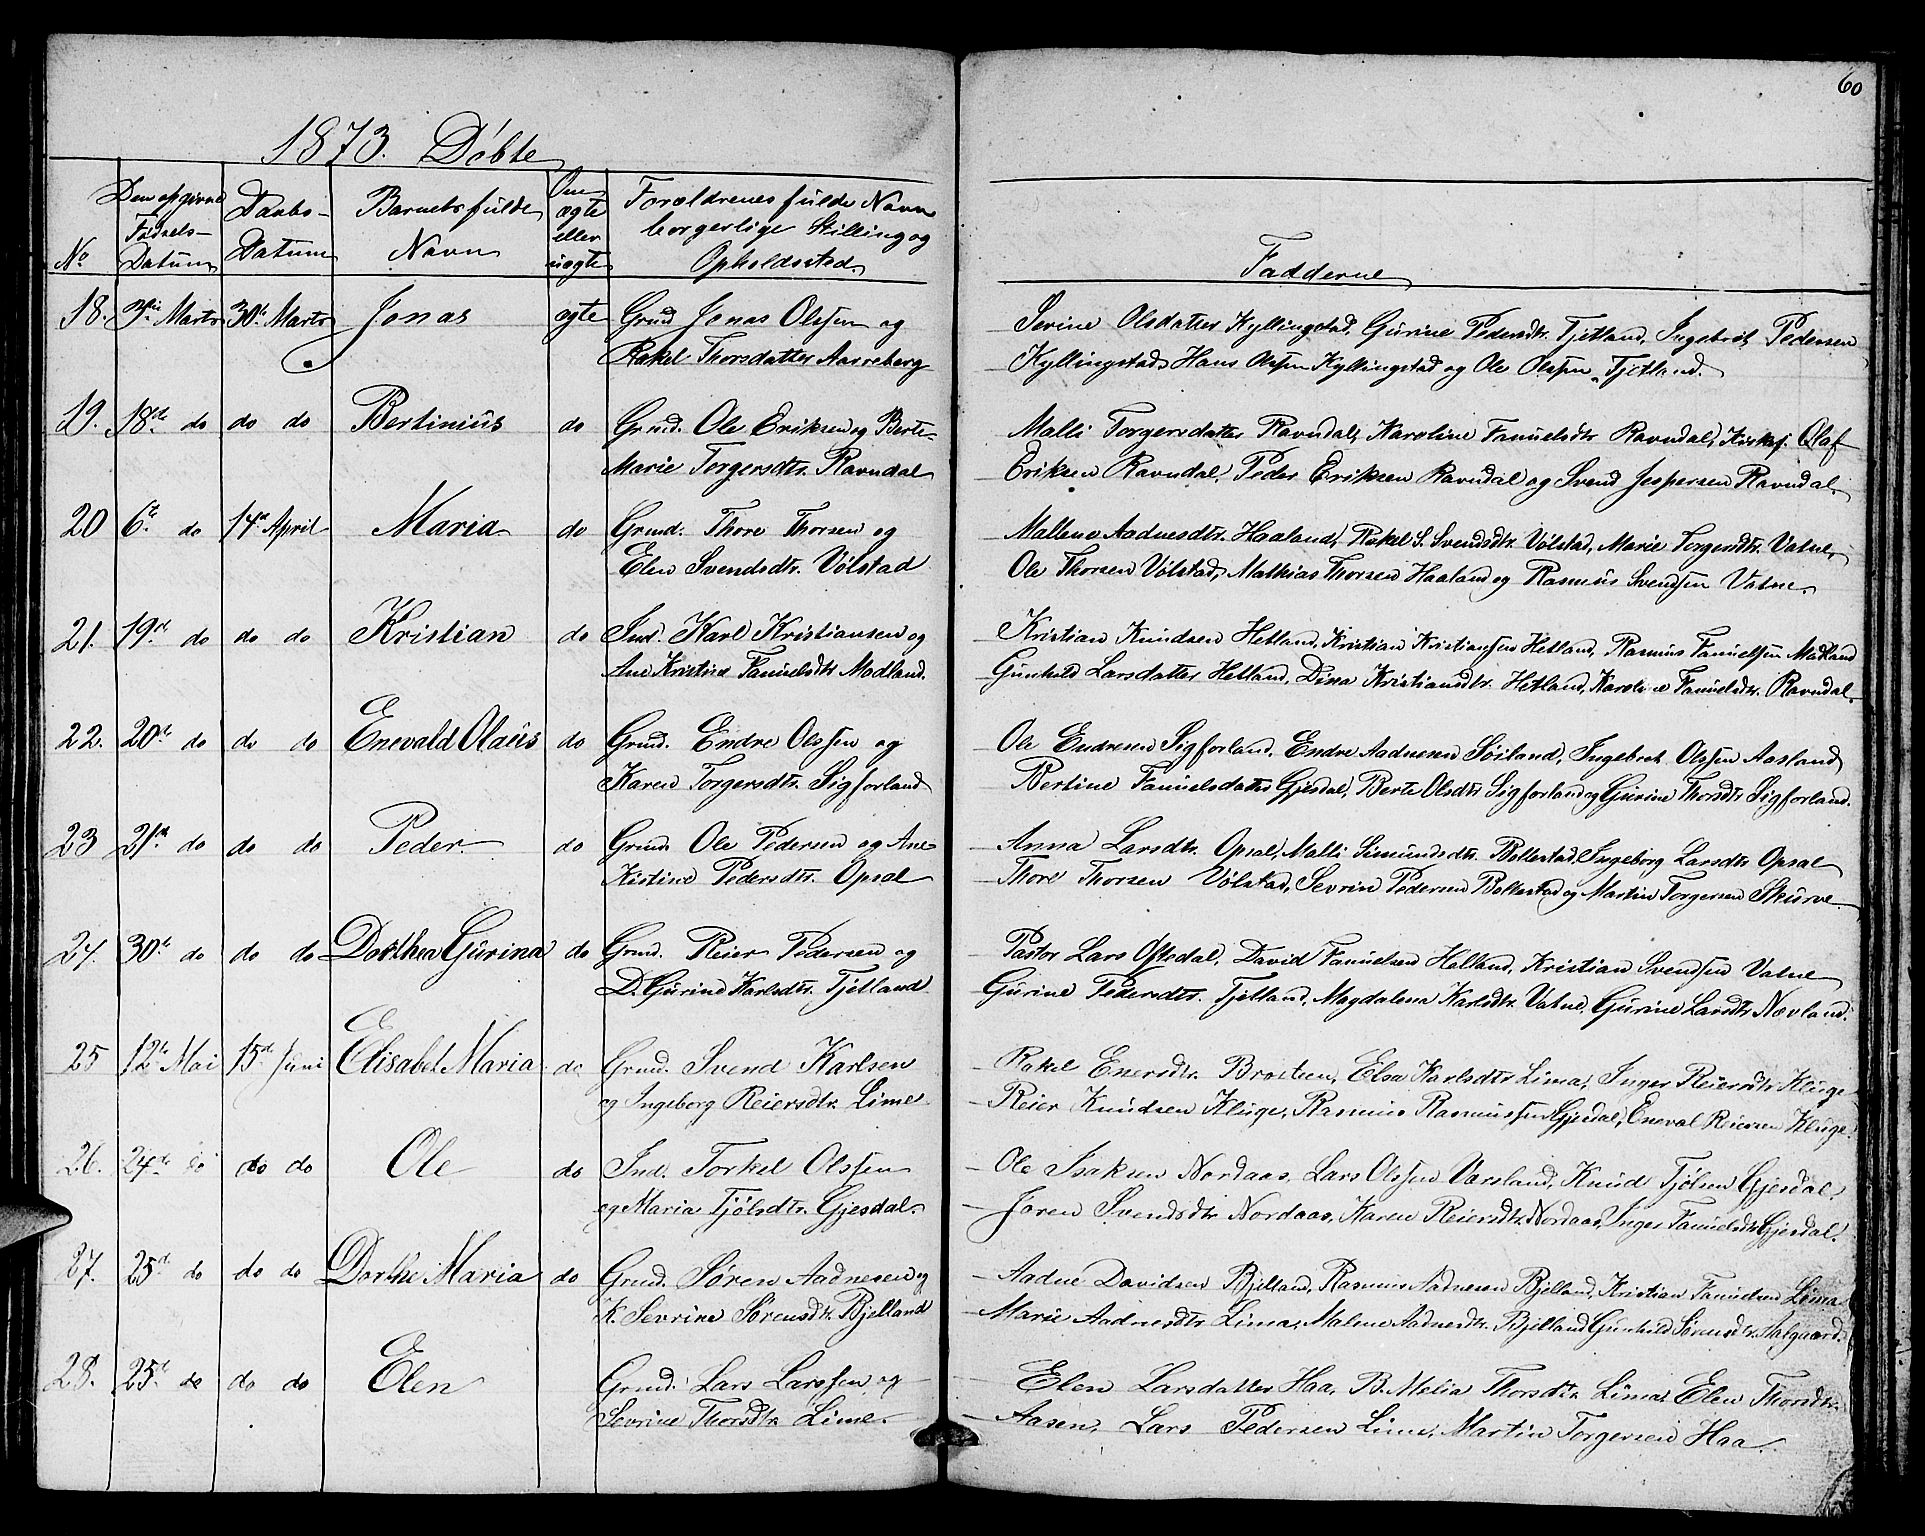 60
1873. Døbte
No
Den opgivne Fødsels-Datum
Daabs-Datum
Barnets fulde Navn
Om ægte eller uægte
Forældrenes fulde Navn borgerlige Stilling og Opholdssted
Fadderne
18. 3die Marts 30te Marts Jonas ægte Grmd Jonas Olsen og
Rakel Thorsdatter Aarreberg
Serine Olsdatter Kyllingstad, Gurine Pedersdtr. Tjetland, Ingebrit Pedersen
Kyllingstad, Hans Olsen Kyllingstad og Ole Olsen Tjetland.
19. 18de do do do Bertinius do Grmd. Ole Eriksen og Berte-
Marie Torgersdtr. Ravndal
Malli Torgersdatter Ravndal, Karoline Tanuelsdtr Ravndal, Kirksg. Olaf
Eriksen Ravndal, Peder Eriksen Ravndal og Svend Jespersen Ravndal.
20 6te do 14de April Maria do Grmd. Thore Thorsen og
Elen Svendsdtr. Vølstad
Mallene Aadnesdtr. Haaland, Rakel S. Svendsdtr Vølstad, Marie Torgersdtr. Vatne,
Ole Thorsen Vølstad, Mathias Thorsen Haaland og Rasmus Svendsen Vatne.
21. 19de do do do Kristian do Ind. Karl Kristiansen og
Ane Kristine Tanuelsdtr Modland.
Kristian Knudsen Hetland, Kristian Kristiansen Hetland, Rasmus Tanuelsen Madland
Gunhild Larsdatter Hetland, Dina Kristiansdtr. Hetland, Karoline Tanuelsdtr. Ravndal.
22. 20de do do do Enevald Olaus do Grmd. Endre Olsen og
Karen Torgersdtr. Sigforland
Ole Endresen Sigforland, Endre Aadnesen Søiland, Ingebret Olsen Aasland,
Bertine Tanuelsdatter Gjesdal, Berte Olsdtr Sigforland og Gurine Thorsdtr Sigforland.
23 21de do do do Peder do Grmd Ole Pedersen og Ane
Kistine Pedersdtr. Opsal
Anna Larsdtr. Opsal, Malli Simundsdtr. Bollestad, Ingeborg Larsdtr Opsal
Thore Thorsen Vølstad, Sevrin Pedersen Bollestad og Martin Torgersen Skurve
24. 30te do do do Dorthea Gurina do Grmd. Reier Pedersen og
D. Gurine Karlsdtr. Tjetland
Pastor Lars Oftedal, David Tanuelsen Helland, Kristian Svendsen Vatne
Gurine Pedersdtr. Tjetland, Magdalena Karlsdtr. Vatne, Gurine Larsdtr Nævland.
25 12te Mai 15de Juni Elisabet Maria do Grmd. Svend Karlsen
og Ingeborg Reiersdtr. Lime
Rakel Enersdtr. Broteen, Elsa Karlsdtr Lima, Inger Reiersdtr Kluge
Reier Knudsen Kluge, Rasmus Rasmussen Gjesdal, Eneval Reiersen Kluge.
26. 24de do do do Ole do Ind. Torkel Olsen
og Maria Tjølsdtr. Gjesdal.
Ole Isaksen Nordaas, Lars Olsen Varsland, Knud Tjølsen Gjesdal,
Joren Svendsdtr Nordaas, Karen Reiersdtr. Nordaas, Inger Tanuelsdtr Gjesdal.
27. 25de do do do Dorthe Maria do Grmd. Søren Aadnesen og
K. Sevrine Sørensdtr. Bjelland
Aadne Davidsen Bjelland, Rasmus Aadnesen Bjelland, Kristian Tanuelsen Lima
Marie Aadnesdtr Lima, Malene Aadnesdtr. Bjelland, Gunhild Sørensdtr. Aalgaard.
28. 25de do do do Elen Grmd. Lars Larssen og
Sevrine Thorsdtr. Lime.
Elen Larsdatter Haa, B. Melia Thorsdtr. Lima, Elen Thorsdtr.
Aasen, Lars Pedersen Lime, Martin Torgersen Haa.